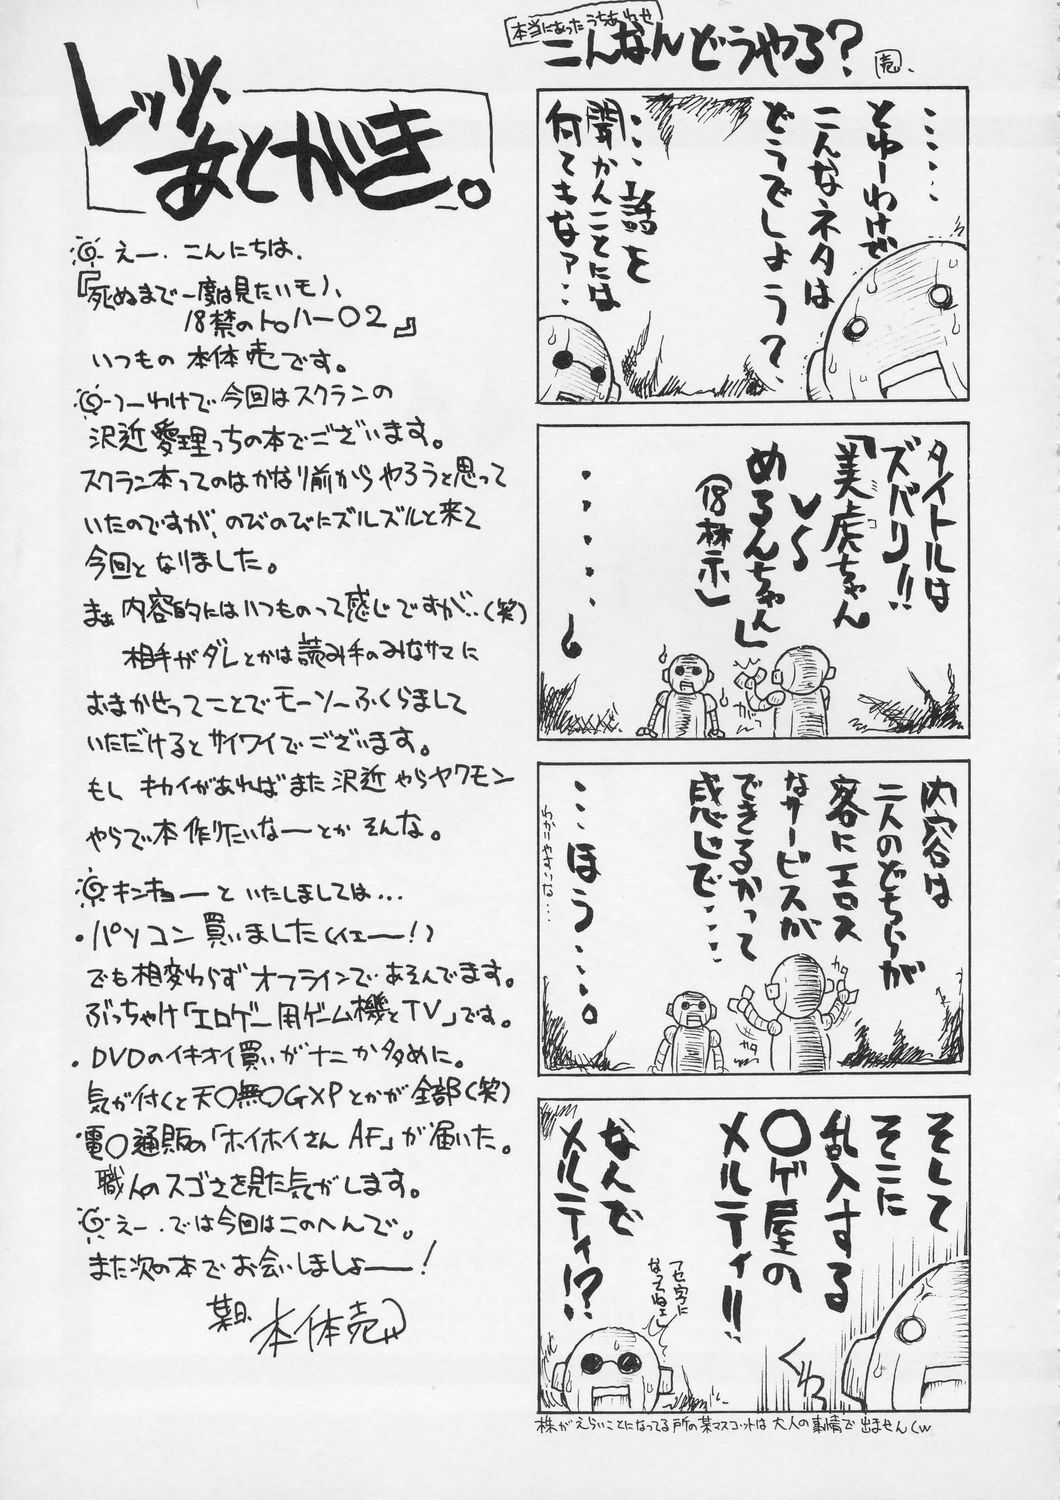 本当にあったうちあわせ
こんなんどうやる?
売
レッツ、
あとがき。
えー、こんにちは、
『死ぬまで一度は見たいモノ、
18禁のトロハ―02』
いつもの 本体売です。
つーわけで今回はスクランの
沢近愛理っちの本でございます。
スクラン本ってのはかなり前からやろうと思って
いたのですが、のびのびにズルズルと来て
今回となりました。
まぁ内容的にはいつものって感じですが‥(笑)
相手がダレとかは読み手のみなサマに
おまかせってことでモーソーふくらまして
いただけるとサイワイでございます。
もし キカイがあればまた沢近やらヤクモン
やらで本作りたいなーとか そんな。
キンキョーといたしましては…
・パソコン買いました(イエー!)
でも相変わらずオフラインであそんでます。
ぶっちゃけ「エロゲー用ゲーム機とTV」です。
・DVDのイキオイ買いがナニか多めに。
気が付くと天〇無〇GXPとかが全部(笑)
電〇通販の「ホイホイさんAF」が届いた。
職人のスゴさを見た気がします。
えー、では今回はこのへんで。
また次の本でお会いしましょーー!
本体売
‥‥‥
とゆーわけで
こんなネタは
どうでしょう?
‥‥話を
聞かんことには
何てもなァ‥‥
タイトルは
ズバリ!!
「美虎ちゃん
ミコ
VS
めるんちゃん」
(18禁)
内容は
二人のどちらが
客にエロス
なサービスが
できるかって
感じで‥‥
‥‥ほう‥‥。
わかりやすいな…
カタ
カタ
そして
そこに
乱入する
〇ゲ屋の
メルティ!!
なんで
メルティ!?
フセ字に
なってねェ
くわっ
株がえらいことになってる所の某マスコットは大人の事情で出ませんくw